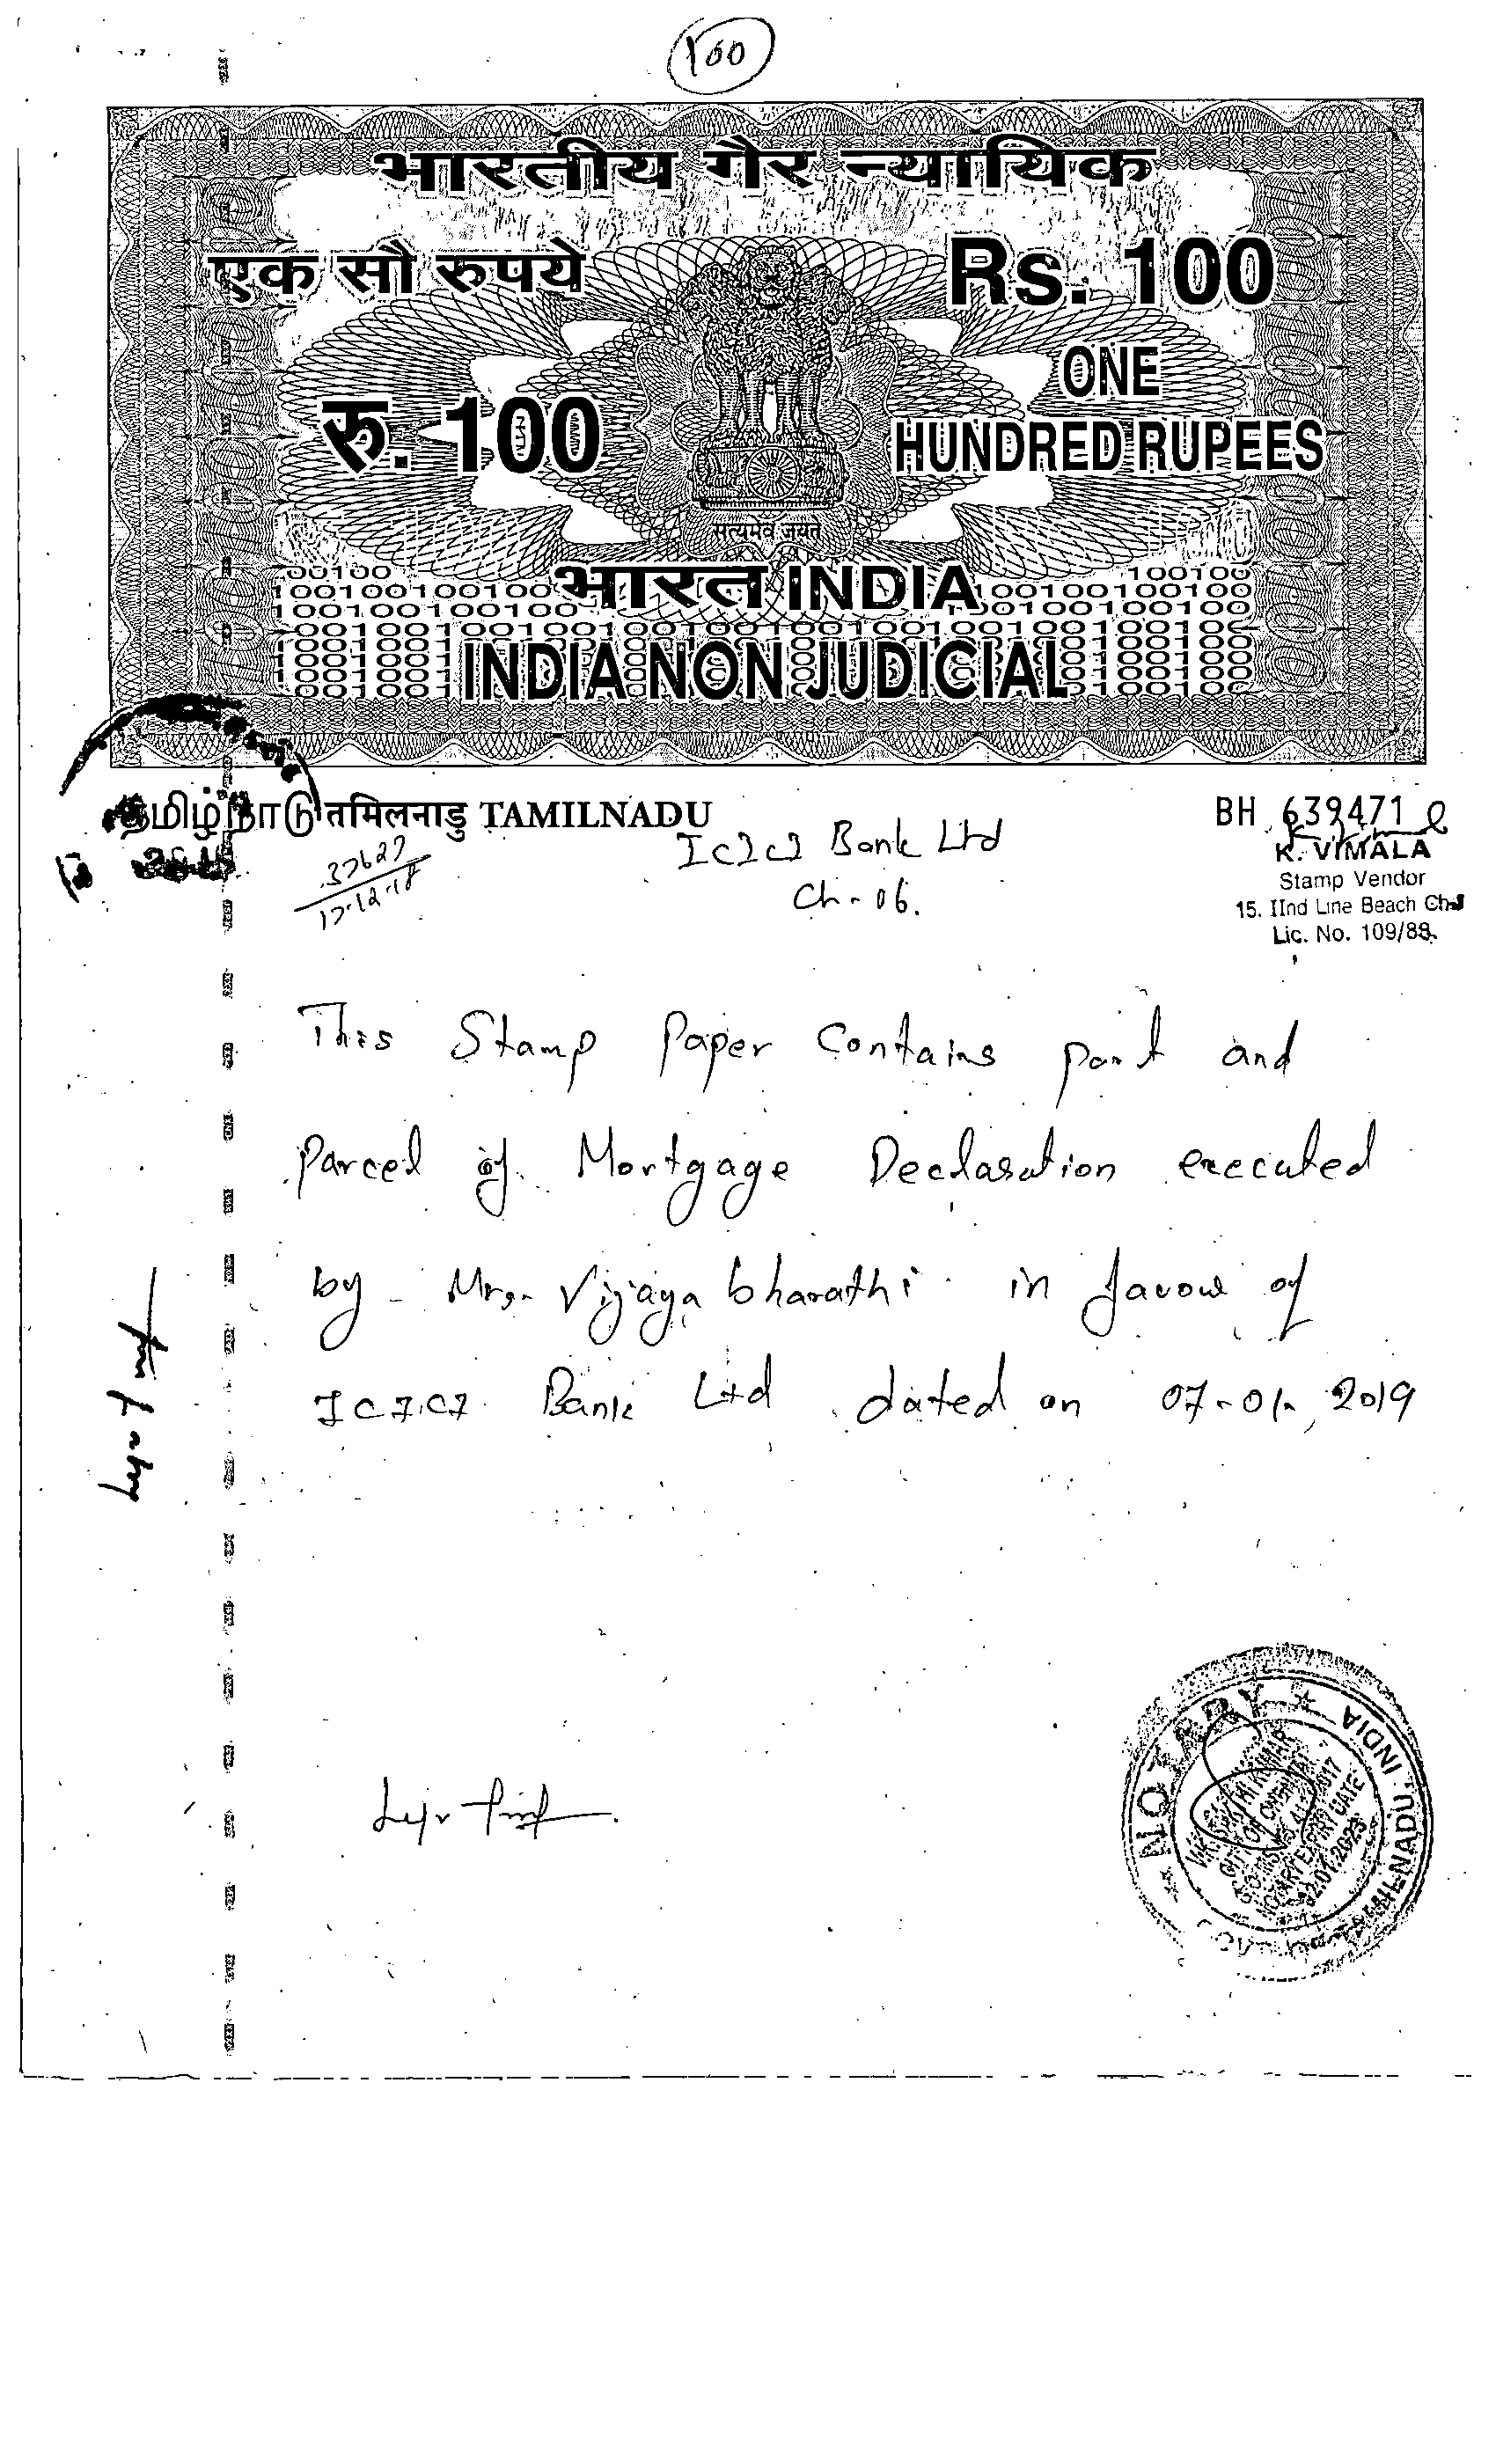 100
भारतीय गैर न्यायिक
एक सौ रुपये
Rs. 100
रु. 100
ONE
HUNDRED RUPEES
सत्यमेव जयते
भारत INDIA
INDIA NON JUDICIAL
தமிழ்நாடு तमिलनाडु TAMILNADU
BH 639471
37627
17-12-18
ICICI Bank Ltd
Ch-06.
K. VIMALA
Stamp Vendor
15. IInd Line Beach Ch-1
Lic. No. 109/88
This Stamp Paper Contains part and
parcel of Mortgage Declaration executed
by Mrs. Vijaya bharathi in favour of
ICICI Bank Ltd dated on 07-01-2019
NOTARY
TAMILNADU, INDIA
NOTARY EXPIRY DATE